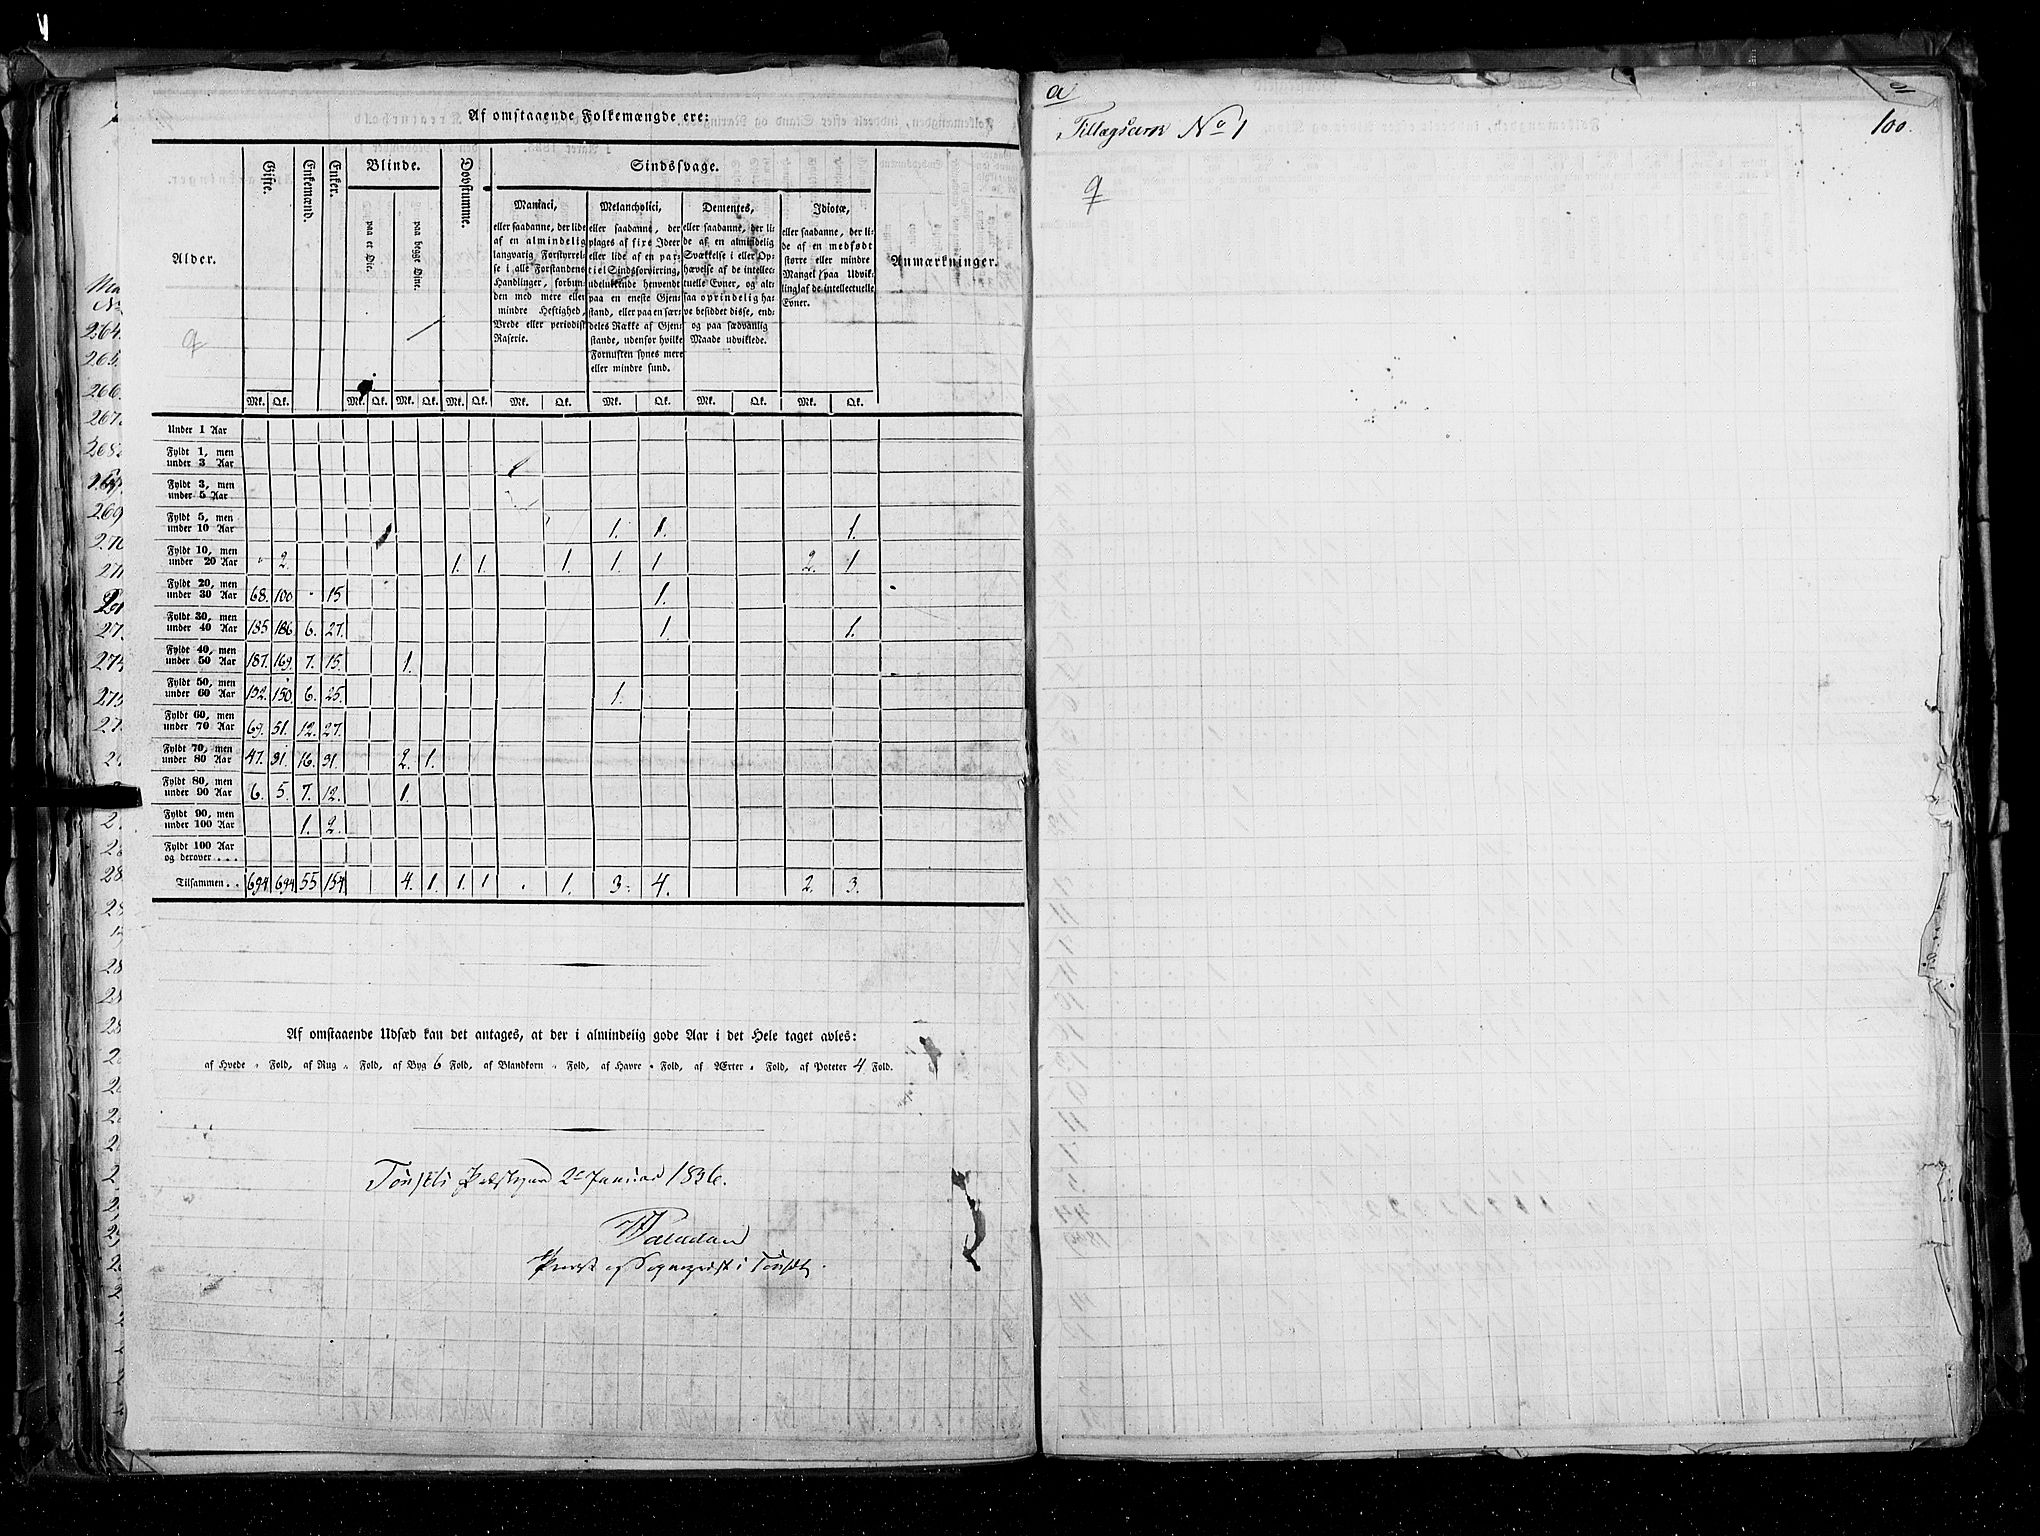 Af omstaaende Folkemængde ere:
Alder. Gifte. Enkemænd. Enker. Blinde. Dovstumme. Sindssvage. Anmærkninger.
paa et Øie. paa begge Øine.
Maniaci,
eller saadanne, der lide
af en almindelig
langvarig Forstyrrel-
se i alle Forstandens
Handlinger, forbun-
den med mere eller
mindre Heftighed,
Vrede eller periodisk
Raserie.
Melancholici,
eller saadanne, der
plages af fixe Ideer
eller lide af en par-
tiel Sindsforvirring,
udelukkende henvendt
paa en eneste Gjen-
stand, eller paa en sær-
deles Række af Gjen-
stande, udenfor hvilke
Fornuften synes mere
eller mindre sund.
Dementes,
eller saadanne, der li-
de af en almindelig
Svækkelse i eller Op-
hævelse af de intellec-
tuelle Evner, og alt-
saa oprindelig ha-
ve besiddet disse, end-
og paa sædvanlig
Maade udviklede.
Idiotæ,
eller saadanne, der li-
de af en medfødt
større eller mindre
Mangel paa Udvik-
ling af de intellectuelle
Evner.
Mk. Qk. Mk. Qk. Mk. Qk. Mk. Qk. Mk. Qk. Mk. Qk. Mk. Qk. Mk. Qk.
Under 1 Aar
Fyldt 1, men
under 3 Aar
Fyldt 3, men
under 5 Aar
Fyldt 5, men
under 10 Aar 1. 1. 1.
Fyldt 10, men
under 20 Aar " 2. 1. 1. 1. 1. 1 2. 1
Fyldt 20, men
under 30 Aar 68. 100 " 15 1.
Fyldt 30, men
under 40 Aar 185 186 6. 27. 1. 1.
Fyldt 40, men
under 50 Aar 187. 169. 7. 15. 1.
Fyldt 50, men
under 60 Aar 132. 150. 6. 25. 1.
Fyldt 60, men
under 70 Aar 69. 51. 12. 27.
Fyldt 70, men
under 80 Aar 47. 31. 16. 31. 2. 1.
Fyldt 80, men
under 90 Aar 6. 5. 7. 12. 1.
Fyldt 90, men
under 100 Aar 1. 2.
Fyldt 100 Aar
og derover . . .
Tilsammen . . 694 694 55 154. 4. 1. 1. 1 " 1. 3. 4. 2. 3.
Af omstaaende Udsæd kan det antages, at der i almindelig gode Aar i det Hele taget avles:
af Hvede " Fold, af Rug " Fold, af Byg 6 Fold, af Blandkorn " Fold, af Havre " Fold, af Ærter " Fold, af Poteter 4 Fold.
Januar 1836.
Sognepræst i
a
Tillægsark No 1
100.